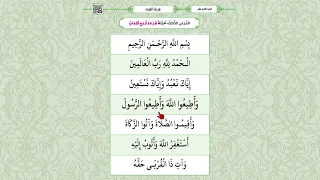 بِسْمِ اللَّهِ الرَّحْمَٰنِ الرَّحِيمِ
الْحَمْدُ لِلَّهِ رَبِّ الْعَالَمِينَ
إِيَّاكَ نَعْبُدُ وَإِيَّاكَ نَسْتَعِينُ
وَأَطِيعُوا اللَّهَ وَأَطِيعُوا الرَّسُولَ
وَأَقِيمُوا الصَّلَاةَ وَآتُوا الزَّكَاةَ
أَسْتَغْفِرُ اللَّهَ وَأَتُوبُ إِلَيْهِ
وَآتِ ذَا الْقُرْبَىٰ حَقَّهُ